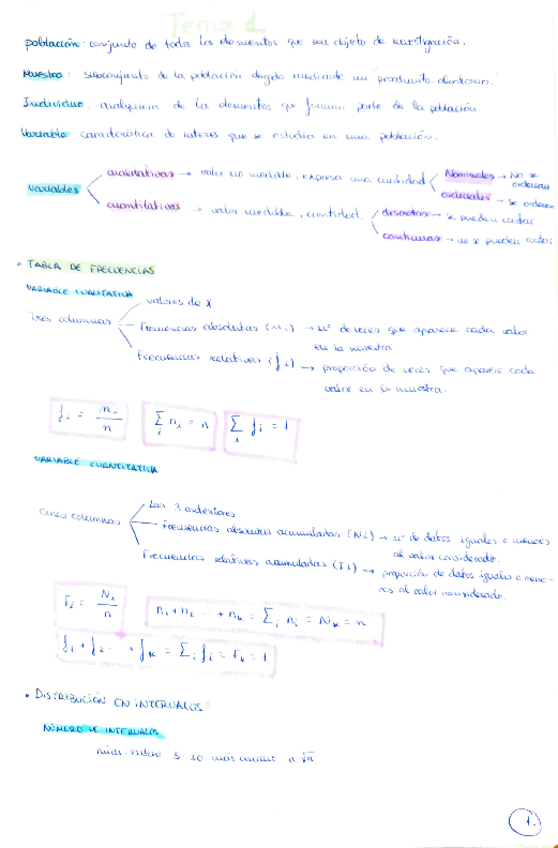 Tema 1
población: conjunto de todos los elementos que son objeto de investigación.
Muestra: subconjunto de la población elegido mediante un procedimiento aleatorio.
Individuo: cualquiera de los elementos que forman parte de la población
Variable característica de interés que se estudia en una población.
variables
cualitativas → valor no medible, expresa una cualidad
Nominales → No se ordenan
ordinales → se ordenan
cuantitativas → valor medible, cantidad.
discretas → se pueden contar
continuas → no se pueden contar
• TABLA DE FRECUENCIAS
VARIABLE CUALITATIVA
Tres columnas
valores de X
Frecuencias absolutas (ni) → nº de veces que aparece cada valor
en la muestra
Frecuencias relativas (fi) → proporción de veces que aparece cada
valor en la muestra.
fi = ni/n
∑i ni = n
∑i fi = 1
VARIABLE CUANTITATIVA
Cinco columnas
Las 3 anteriores
Frecuencias absolutas acumuladas (Ni) → nº de datos iguales o menores
al valor considerado.
Frecuencias relativas acumuladas (Fi) → proporción de datos iguales o meno-
res al valor considerado.
Fi = Ni/n
n1 + n2 ... + nk = ∑i ni = Nk = n
f1 + f2 ... + fk = ∑i fi = Fk = 1
• DISTRIBUCIÓN EN INTERVALOS
NÚMERO DE INTERVALOS
5 20 más a √n
1.